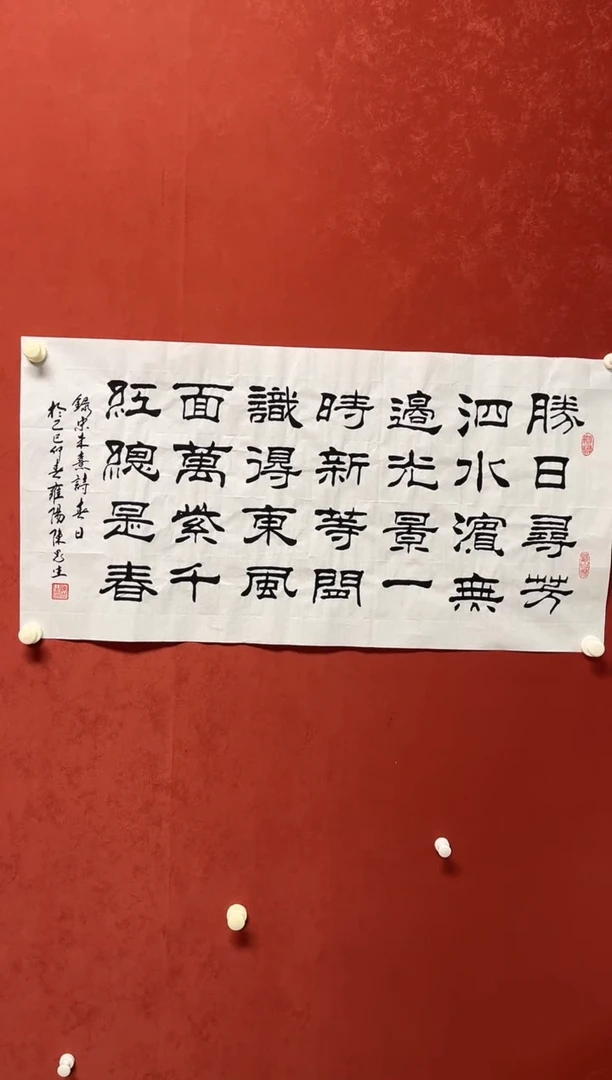 勝日尋芳
泗水濱無
邊光景一
時新等間
識得東風
面萬紫千
紅總是春
錄宋朱熹詩春日
於乙巳仲春雍陽陳